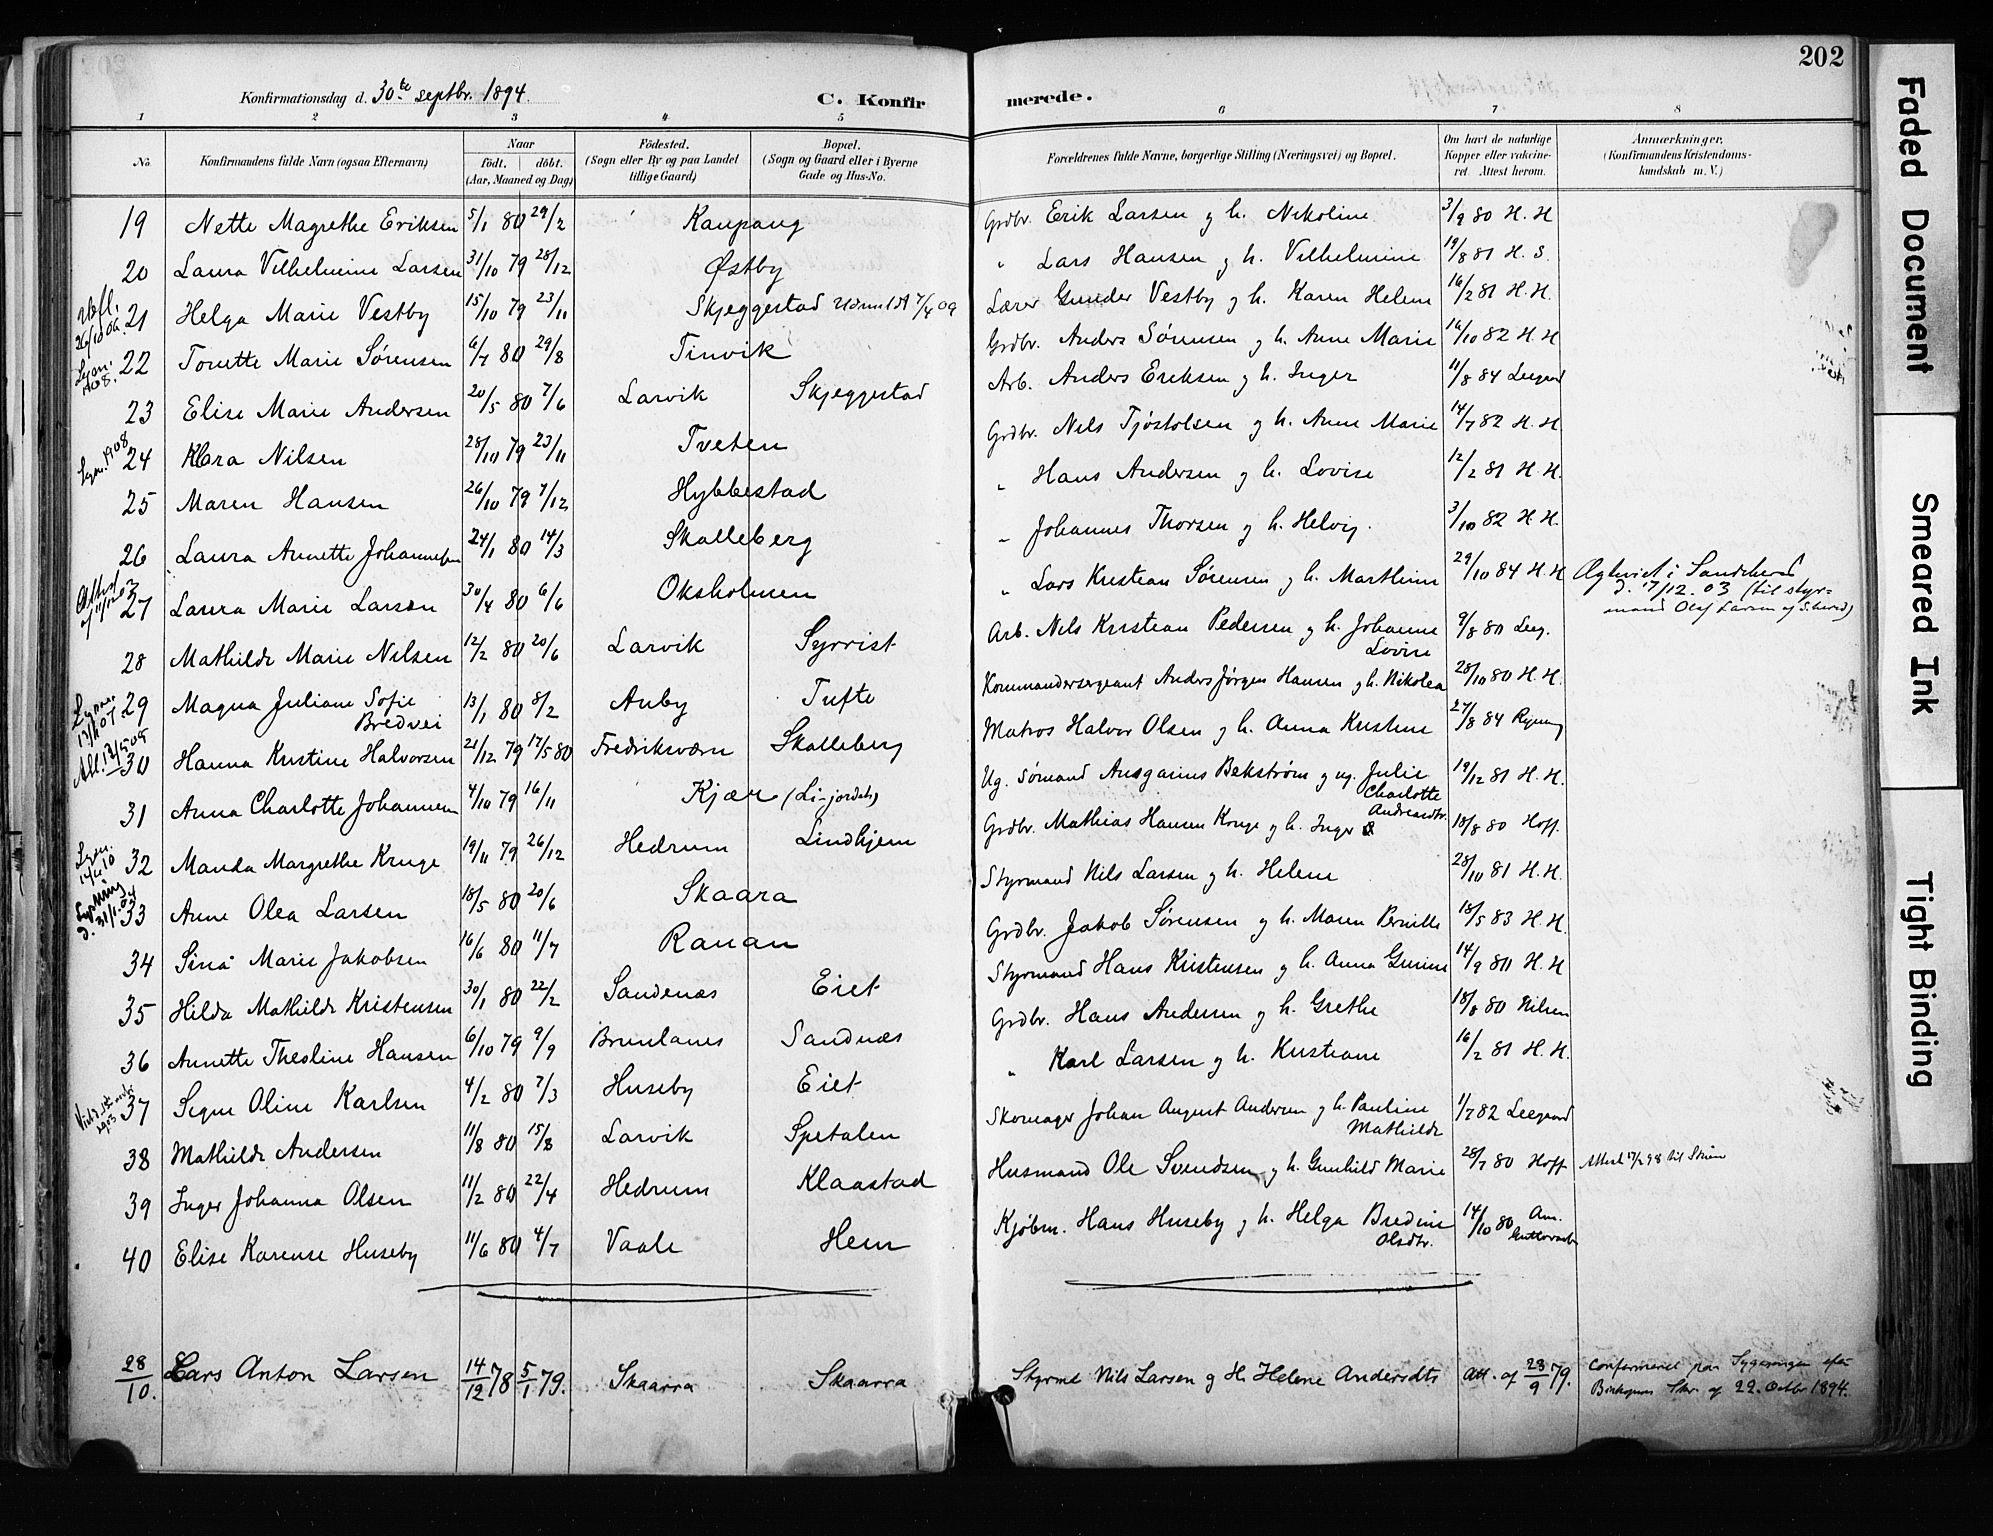 202
Konfirmationsdag d. 30te septbr. 1894. C. Konfirmerede.
1 2 3 4 5 6 7 8
No. Konfirmandens fulde Navn (ogsaa Efternavn) Naar født. døbt. (Aar, Maaned og Dag) Fødested. (Sogn eller By og paa Landet tillige Gaard) Bopæl. (Sogn og Gaard eller i Byerne Gade og Hus-No. Forældrenes fulde Navne, borgerlige Stilling (Næringsvei) og Bopæl. Om havt de naturlige Kopper eller vakcineret. Attest herom. Anmærkninger. (Konfirmandens Kristendomskundskab m. V.)
19 Nette Magrethe Eriksen 5/1 80 29/2 Kaupang Grdbr. Erik Larsen og h. Nikoline 3/9 80 H. H
20 Laura Vilhelmine Larsen 31/10 79 28/12 Østby " Lars Hansen og h. Vilhelmine 19/8 81 H. S.
26/10 06. 21 Helga Marie Vestby 15/10 79 23/11 Skjeggestad Udmeldt 7/4 09 Lærer Gunder Vestby og h. Karen Helene 16/2 81 H. H.
1908. 22 Tonette Marie Sørensen 6/7 80 29/8 Tinvik Grdbr. Anders Sørensen og h. Anne Marie 16/10 82 H. H
23 Elise Marie Andersen 20/5 80 7/6 Larvik Skjeggestad Arb. Anders Eriksen og h. Inger 11/8 84 Leegaard
1908 24 Klara Nilsen 28/10 79 23/11 Tveten Grdbr. Nils Tjøstolsen og h. Anne Marie 14/7 82 H. H
25 Maren Hansen 26/10 79 7/12 Hybbestad " Hans Andersen og h. Lovise 12/2 81 H. H.
26 Laura Annette Johannessen 24/1 80 14/3 Skalleberg " Johannes Thorsen og h. Helvig. 3/10 82 H. H.
Attest 27 Laura Marie Larsen 30/4 80 6/6 Oksholmen " Lars Kristian Sørensen og h. Marthine 29/10 84 H. H Ægteviet i Sandeherd d. 17/12. 03 (til styrmand Olaf Larsen af S.herred)
28 Mathilde Marie Nilsen 12/2 80 20/6 Larvik Syrrist Arb. Nils Kristian Pedersen og h. Johanne Lovise 9/8 80 Leeg.
29 Magna Juliane Sofie Bredvei 13/1 80 8/2 Auby Tufte Kommandersergeant Anders Jørgen Hansen og h. Nikolea 28/10 80 H. H.
30 Hanna Kristine Halvorsen 21/12 79 17/5 80 Fredriksværn Skalleberg Matros Halvor Olsen og h. Anna Kristine 27/8 84 Rynning
31 Anna Charlotte Johannesen 4/10 79 16/11 Kjær (Li-jordet) Ug. Sømand Ansgarius Bekstrøm og ug. Julie Charlotte Andreasdtr. 19/12 81 H. H.
14/4 10 32 Manda Margrethe Kruge 19/11 79 26/12 Hedrum Lindhjem Grdbr. Mathias Hansen Kruge og h. Inger 18/8 80 Hoff.
Lysning d. 31/1. 04 33 Anne Olea Larsen 18/5 80 20/6 Skaara Styrmand Nils Larsen og h. Helene 28/10 81 H. H.
34 Sina Marie Jakobsen 16/6 80 11/7 Rauan Grdbr. Jakob Sørensen og h. Maren Pernille 18/5 83 H. H.
35 Hilda Mathilde Kristensen 30/1 80 22/2 Sandenæs Eiet Styrmand Hans Kristensen og h. Anna Gurine 14/9 80 H. H
36 Annette Theoline Hansen 6/10 79 9/9 Brunlanes Sandnæs Grdbr. Hans Andersen og h. Grethe 18/8 80 Nilsen
1903 37 Signe Oline Karlsen 4/2 80 7/3 Huseby Eiet " Karl Larsen og h. Kristiane 16/2 81 H. H.
38 Mathilde Andersen 11/8 80 15/8 Larvik Spetalen Skomager Johan August Andersen og h. Pauline Mathilde 1/7 82 Leegaard
39 Inger Johanna Olsen 11/2 80 22/4 Hedrum Klaastad Husmand Ole Svendsen og h. Gunhild Marie 28/7 80 Hoff
40 Elise Karense Huseby 11/6 80 4/7 Vaale Hem Kjøbm. Hans Huseby og h. Helga Bredine Olsdtr. 14/10 80
28/10. Lars Anton Larsen 14/12 78 5/1 79. Skaarra Skaarra Styrmd Nils Larsen og H. Helene Andersdtr Att. af 23/9 79. Confirmeret paa Sygesengen efter Biskopens Skr. af 22. Octbr 1894.
Faded Document
Smeared Ink
Tight Binding